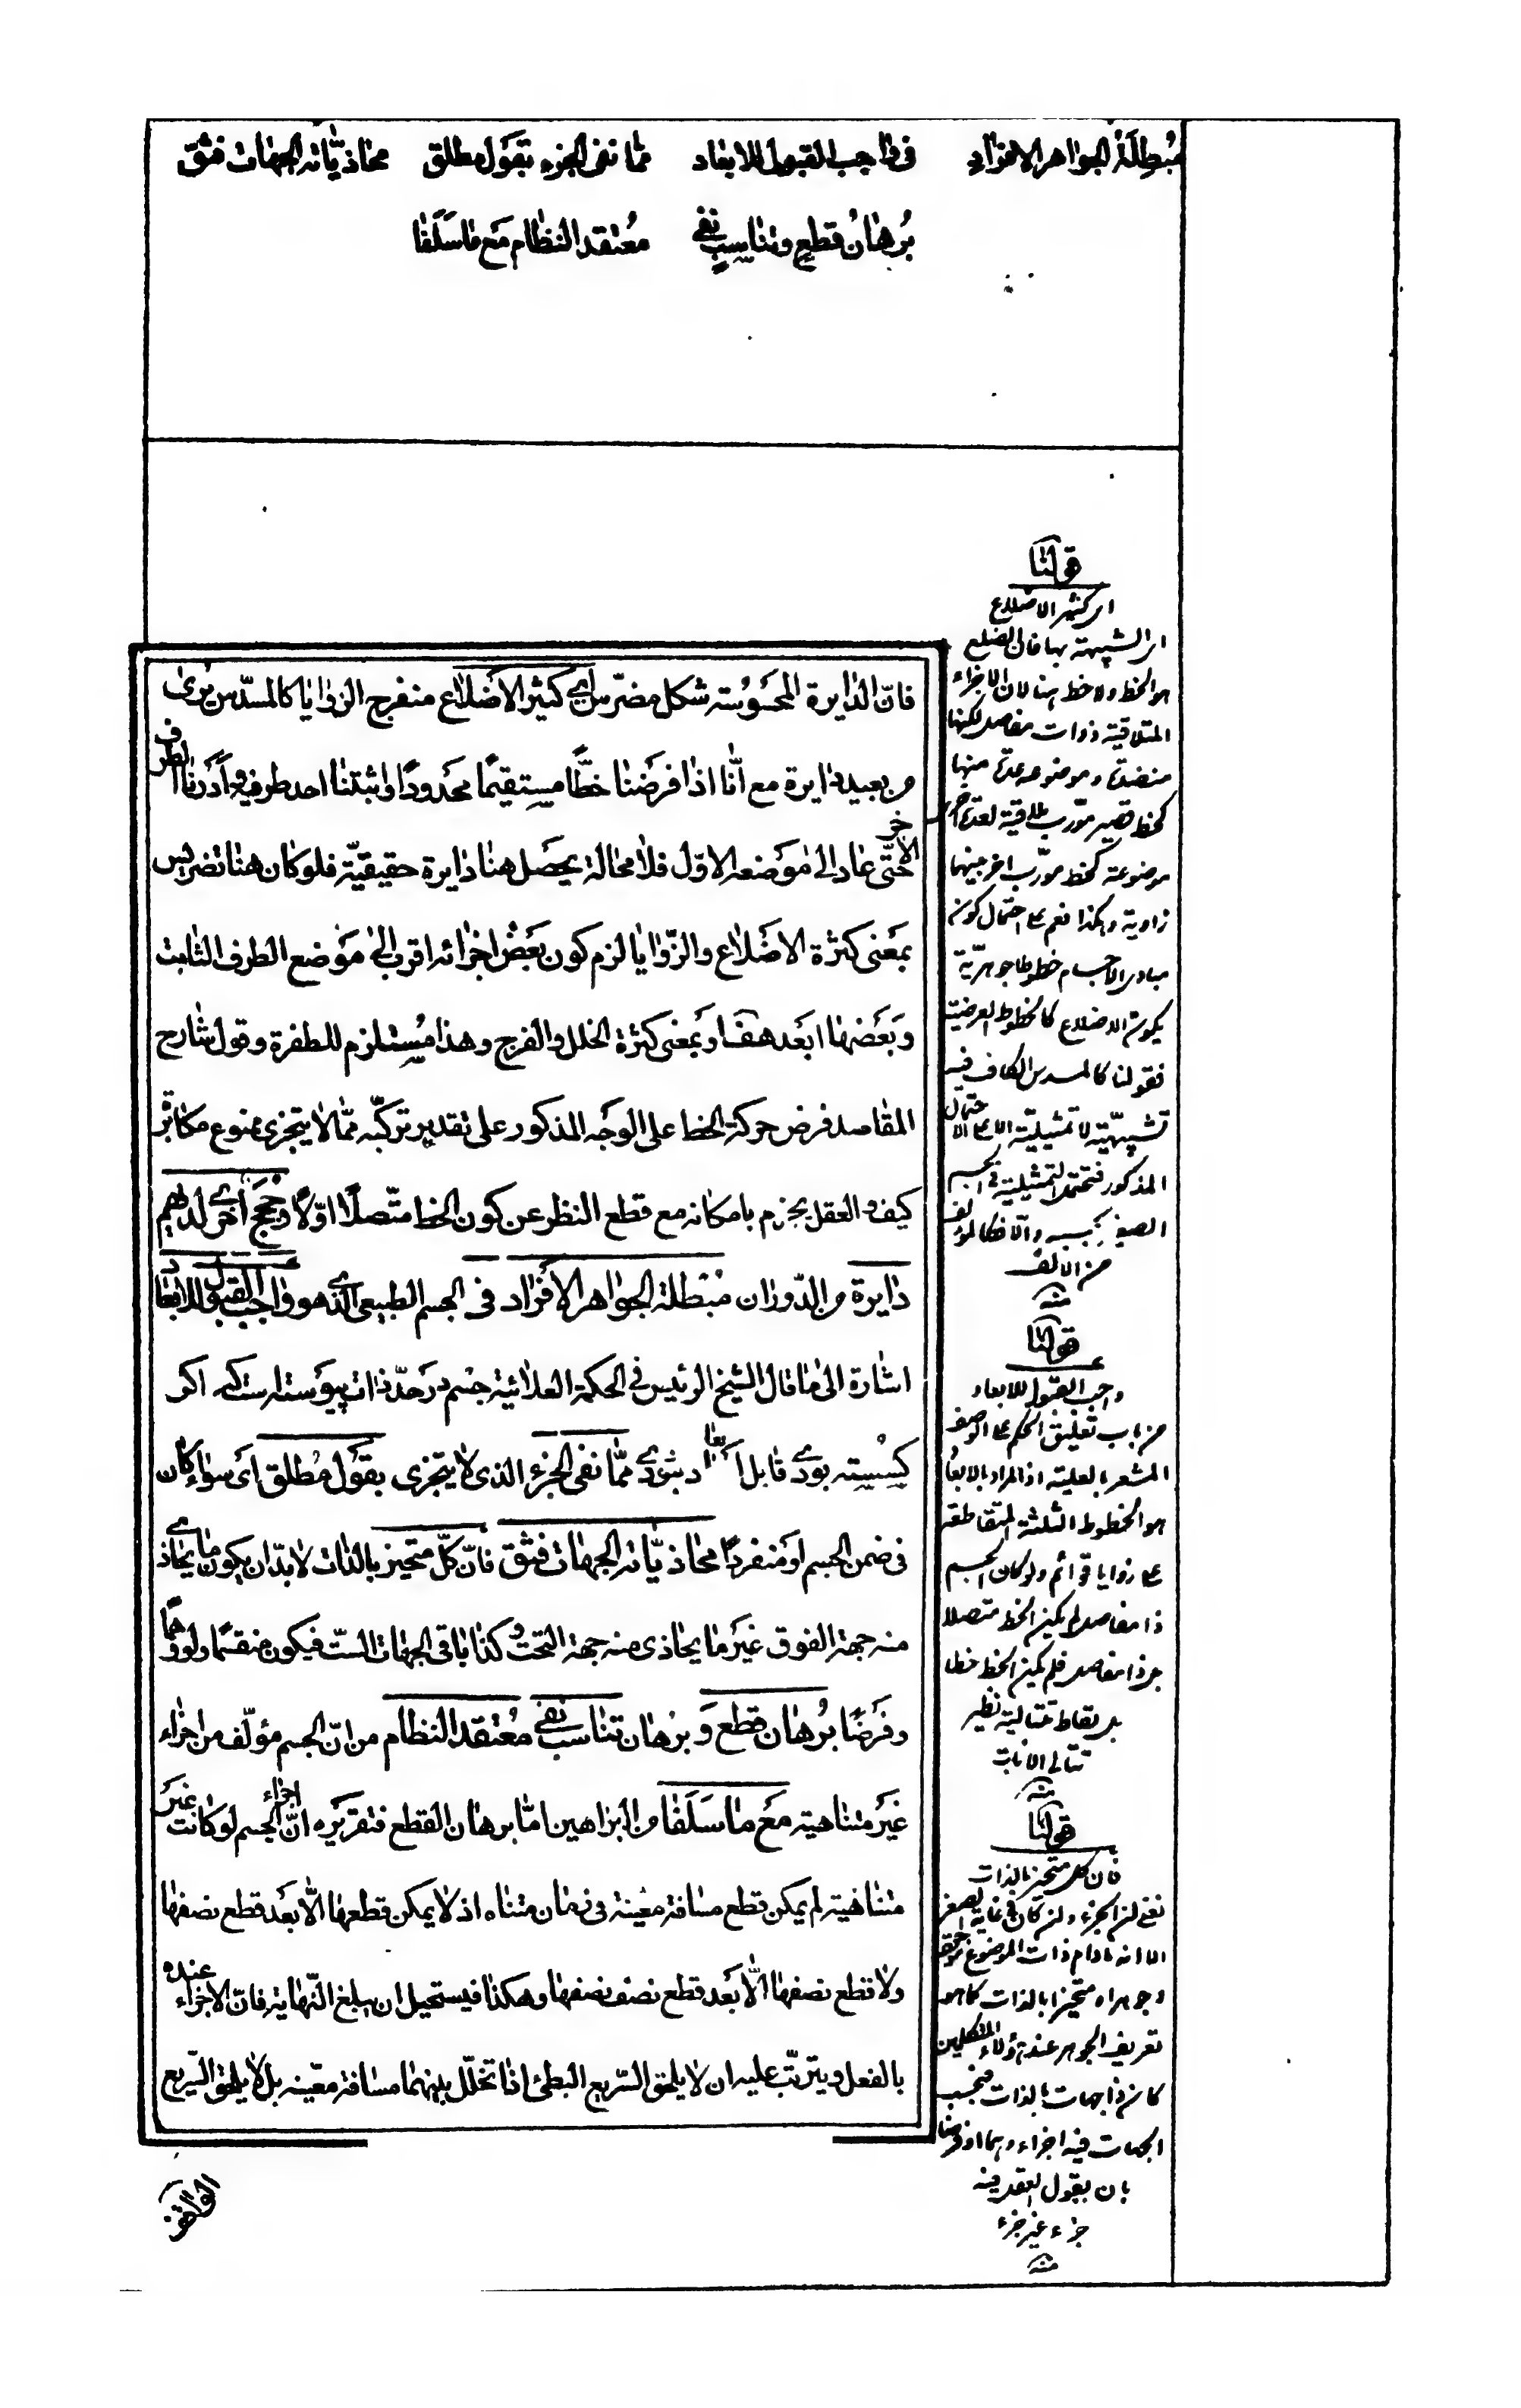 مُبطِلَةُ الجواهر الافراد    فی واجب القبول للابعاد    ممّا نفی الجزء بقول مطلق    محاذیّاته الجهات فثق
بُرهانُ قطعٍ وتناسبٍ نفی    مُعتقد النظّام مَع ما سَلَفا
فانّ الدایرة المحسوسة شکل مضرّس ای کثیر الاضلاع منفرج الزوایا کالمسدّس یری
من بعید دایرة مع انّا اذا فرضنا خطًّا مستقیمًا محدودًا واثبتنا احد طرفیه وأدرنا الطرف
الآخر حتّی عاد الی موضعه الاوّل فلا محالة یحصل هنا دایرة حقیقیّة فلو کان هنا تضریس
بمعنی کثرة الاضلاع والزّوایا لزم کون بعض اجزائه اقرب الی موضع الطرف الثابت
وبعضها ابعد هف او بمعنی کثرة الخلل والفرج وهذا مستلزم للطفرة وقول شارح
المقاصد فرض حرکة الخط علی الوجه المذکور علی تقدیر ترکّبه ممّا لا یتجزی ممنوع مکابرة
کیف والعقل یجزم بامکانه مع قطع النظر عن کون الخط متّصلًا اوّلًا وحجج أخری لدیهم
دایرة من الدّوران مُبطلة الجواهر الأفراد فی الجسم الطبیعی الذی هو واجب القبول للابعاد
اشارة الی ما قال الشیخ الرئیس فی الحکمة العلائیة جسم در حدّ ذات پیوسته است که اگر
گسسته بودی قابل ابعاد نبودی ممّا نفی الجزء الذی لا یتجزی بقول مُطلق ای سواء کان
فی ضمن الجسم او منفردًا محاذیّاته الجهات فثق فانّ کلّ متحیز بالذات لا بدّ ان یکون ما یحاذی
منه جهة الفوق غیر ما یحاذی منه جهة التحت وکذا باقی الجهات الستّ فیکون منقسمًا ولو وهمًا
وفرضًا بُرهان قطع وبرهان تناسب نفی مُعتقد النظام من انّ الجسم مؤلّف من اجزاء
غیر متناهیة مَع ما سَلَفا من البراهین امّا برهان القطع فتقریره انّ اجزاء الجسم لو کانت غیر
متناهیة لم یمکن قطع مسافة معینة فی زمان متناه اذ لا یمکن قطعها الّا بعد قطع نصفها
ولا قطع نصفها الّا بعد قطع نصف نصفها وهکذا فیستحیل ان یبلغ النّهایة فان الاجزاء عنده
بالفعل ویترتّب علیه ان لا یلحق السّریع البطیء اذا تخلّل بینهما مسافة معیّنه بل لا یلحق السّریع
الواقف
قولنا
ای کثیر الاضلاع
ای الشبیهة بها فان الضلع
هو الخط ولا خط هنا لان الاجزاء
المتلاقیة ذوات مفاصل لکنها
منضدة وموضوعة عدة منها
کخط قصیر مورّب ملاقیة لعدة اخری
موضوعة کخط مورّب اخر بینهما
زاویة وهکذا نعم علی احتمال کون
مبادی الاجسام خطوطا جوهریّة
یکون الاضلاع کالخطوط العرضیة
فقولنا کالمسدس الکاف فیه
تشبیهیّة لا تمثیلیّة الا علی الاحتمال
المذکور فتحتمل التمثیلیة فی الجسم
من الالف
منه
قولنا
واجب القبول للابعاد
من باب تعلیق الحکم علی الوصف
المشعر بالعلیة اذ المراد بالابعاد
هو الخطوط الثلثة المتقاطعة
علی زوایا قوائم ولو کان الجسم
ذا مفاصل لم یکن الخط متصلا
بل ذا مفاصل فلم یکن الخط خطا
بل نقاط متتالیة نظیر
تتالی الانات
منه
قولنا
فان کل متحیز بالذات
نعنی ان الجزء وان کان فی غایة الصغر
الا انه ما دام ذات الموضوع
وجوهرا ومتحیزا بالذات کما هو
تعریف الجوهر عند هؤلاء المتکلمین
کان ذا جهات بالذات فبحسب
الجهات فیه اجزاء وهما او فرضا
بان یقول العقل فیه
جزء غیر جزء
منه